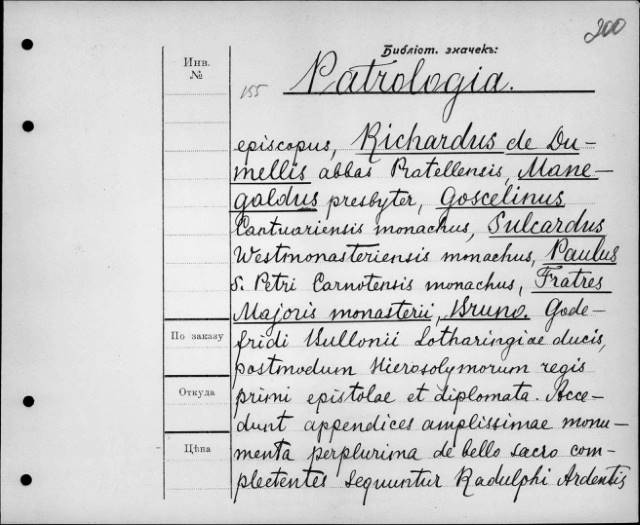 200
Библіот. значекъ:
Инв.
№
155
Patrologia.
episcopus, Richardus de Du-
mellis abbas Pratellensis, Mane-
goldus presbyter, Goscelinus
Cantuariensis monachus, Sulcardus
Westmonasteriensis monachus, Paulus
S. Petri Carnotensis monachus, Fratres
Majoris monasterii, Bruno. Gode-
fridi Bullonii Lotharingiae ducis,
postmodum Hierosolymorum regis
primi epistolae et diplomata. Acce-
dunt appendices amplissimae monu-
menta perplurima de bello sacro com-
plectentes sequuntur Radulphi Ardentis
По заказу
Откуда
Цѣна